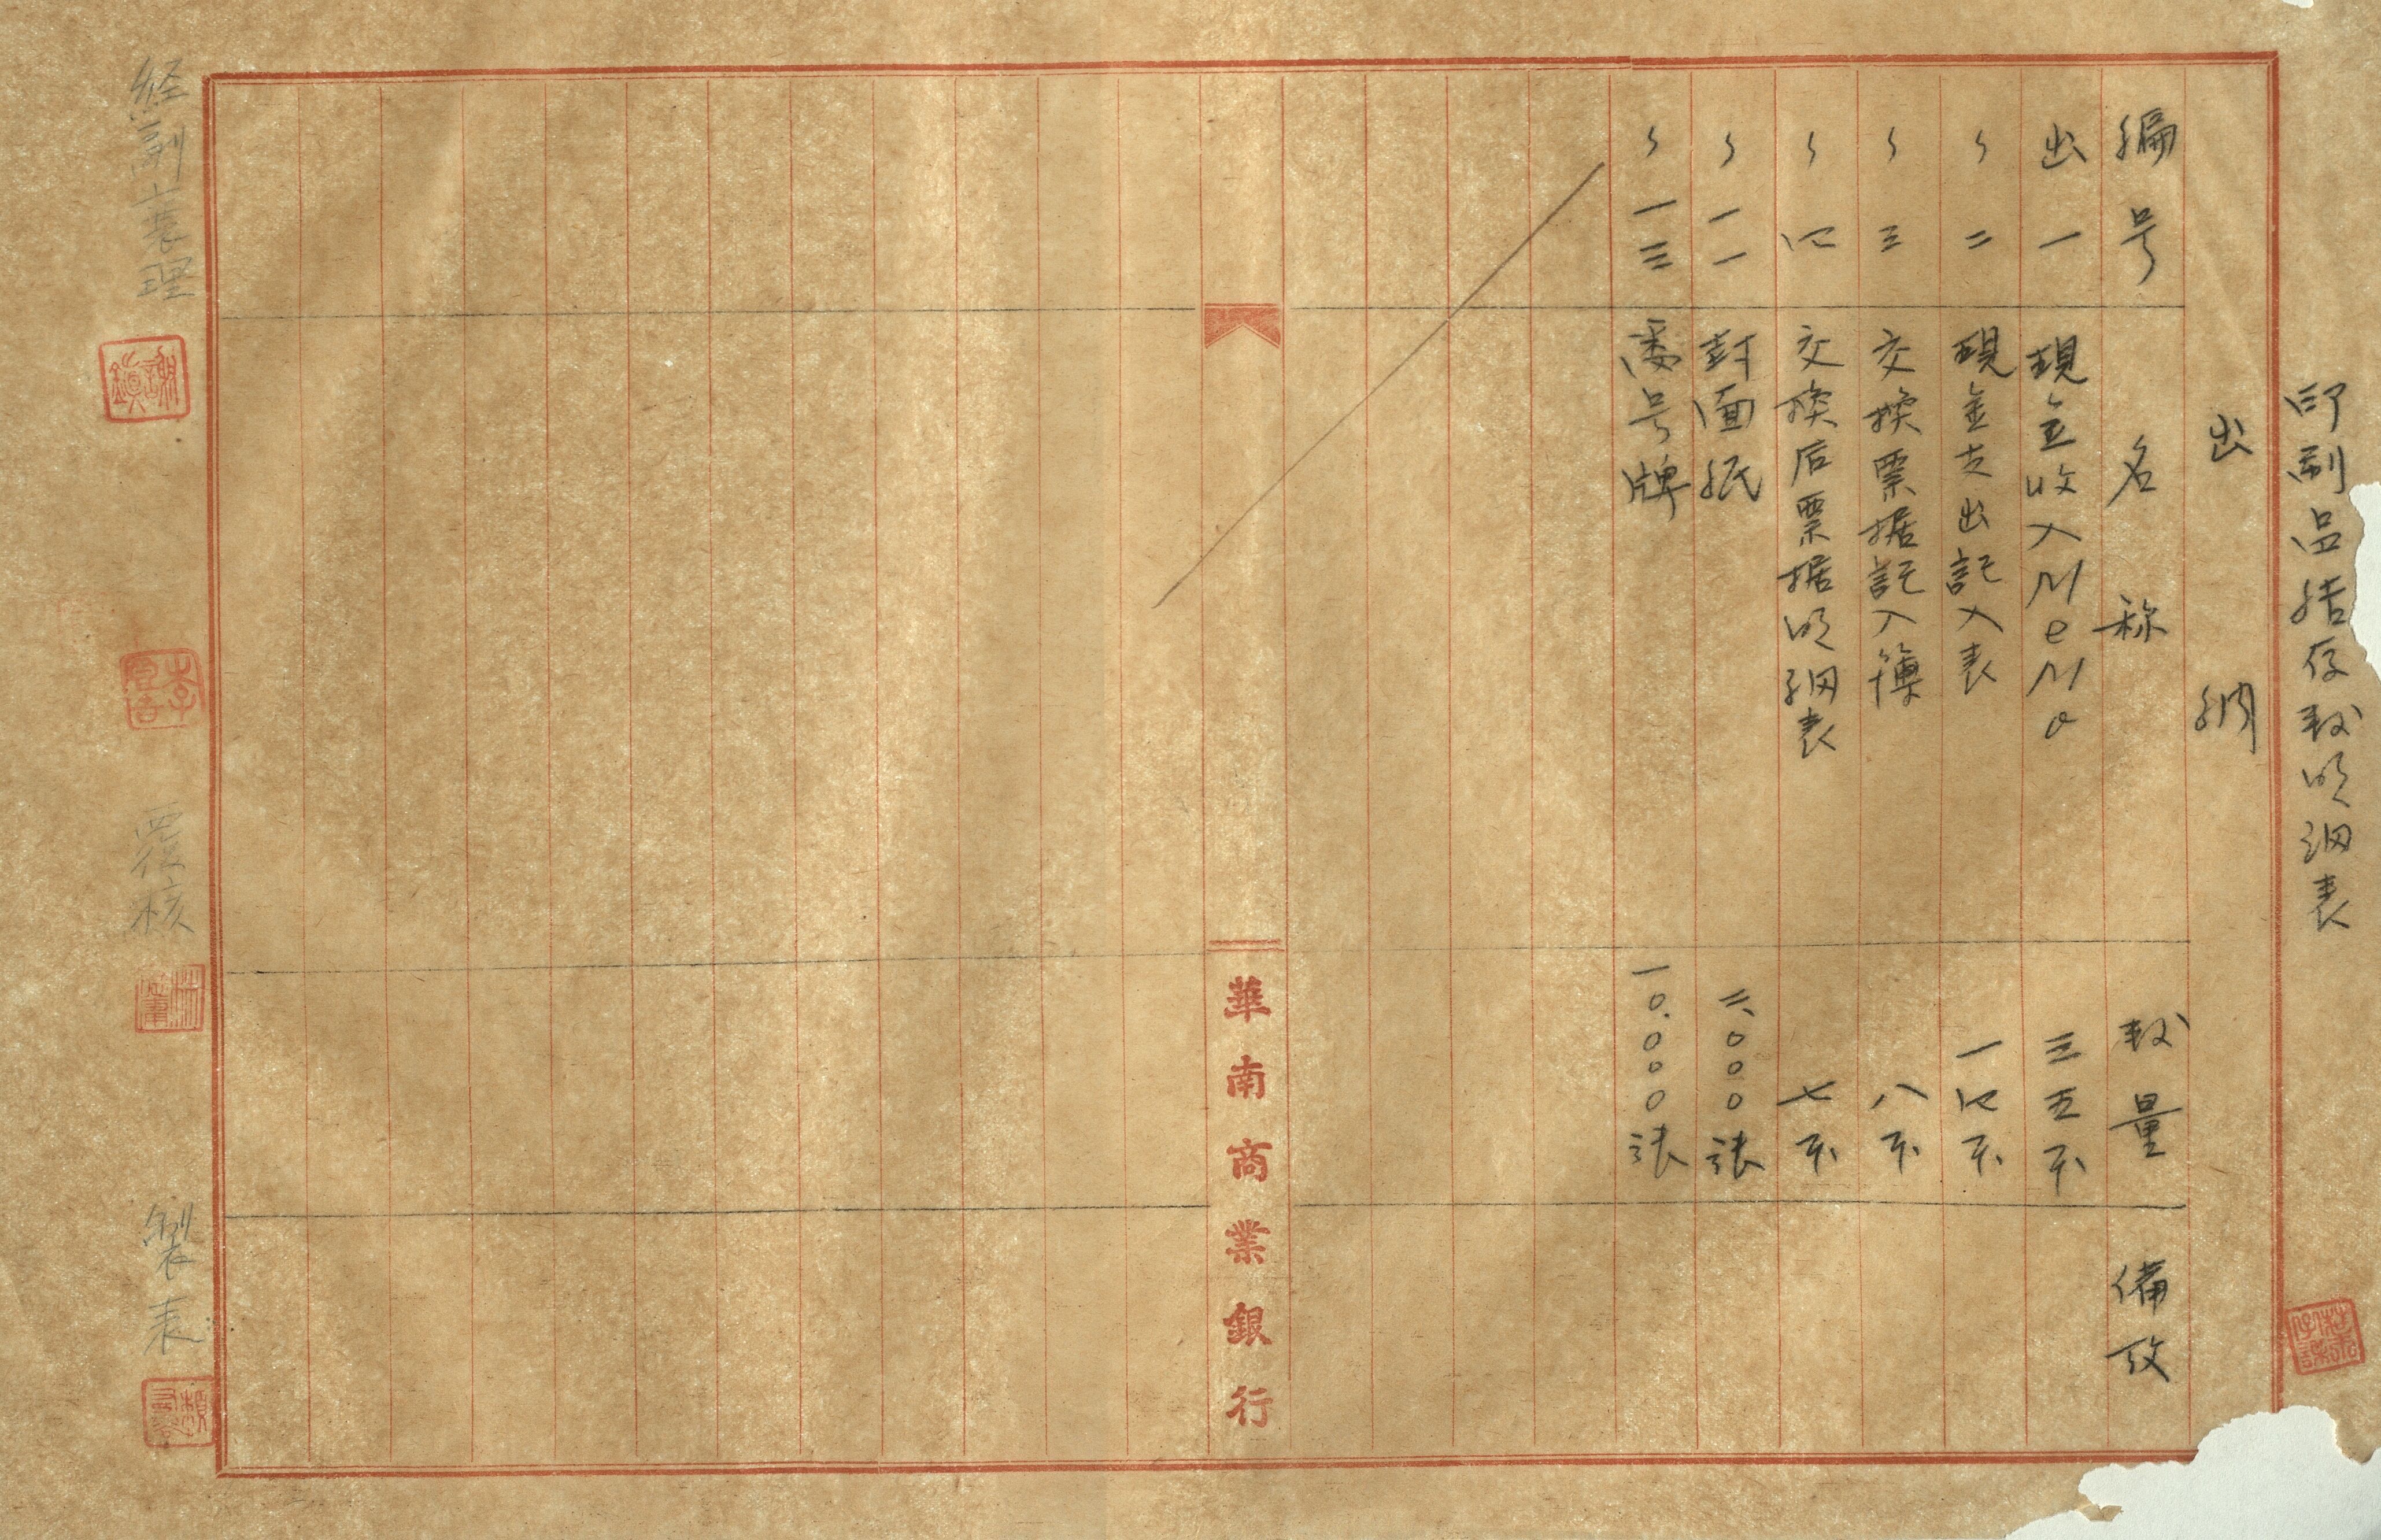 印刷品结存数明细表
出納
編号 名称 数量 備攷
出一 現金收入MeMo 三五本
〃二 現金支出記入表 一四本
〃三 交換票据記入簿 八本
〃四 交換后票据明細表 七本
〃一一 封面紙 二、〇〇〇張
〃一三 号牌 一〇.〇〇〇張
華南商業銀行
経副襄理
覆核
製表